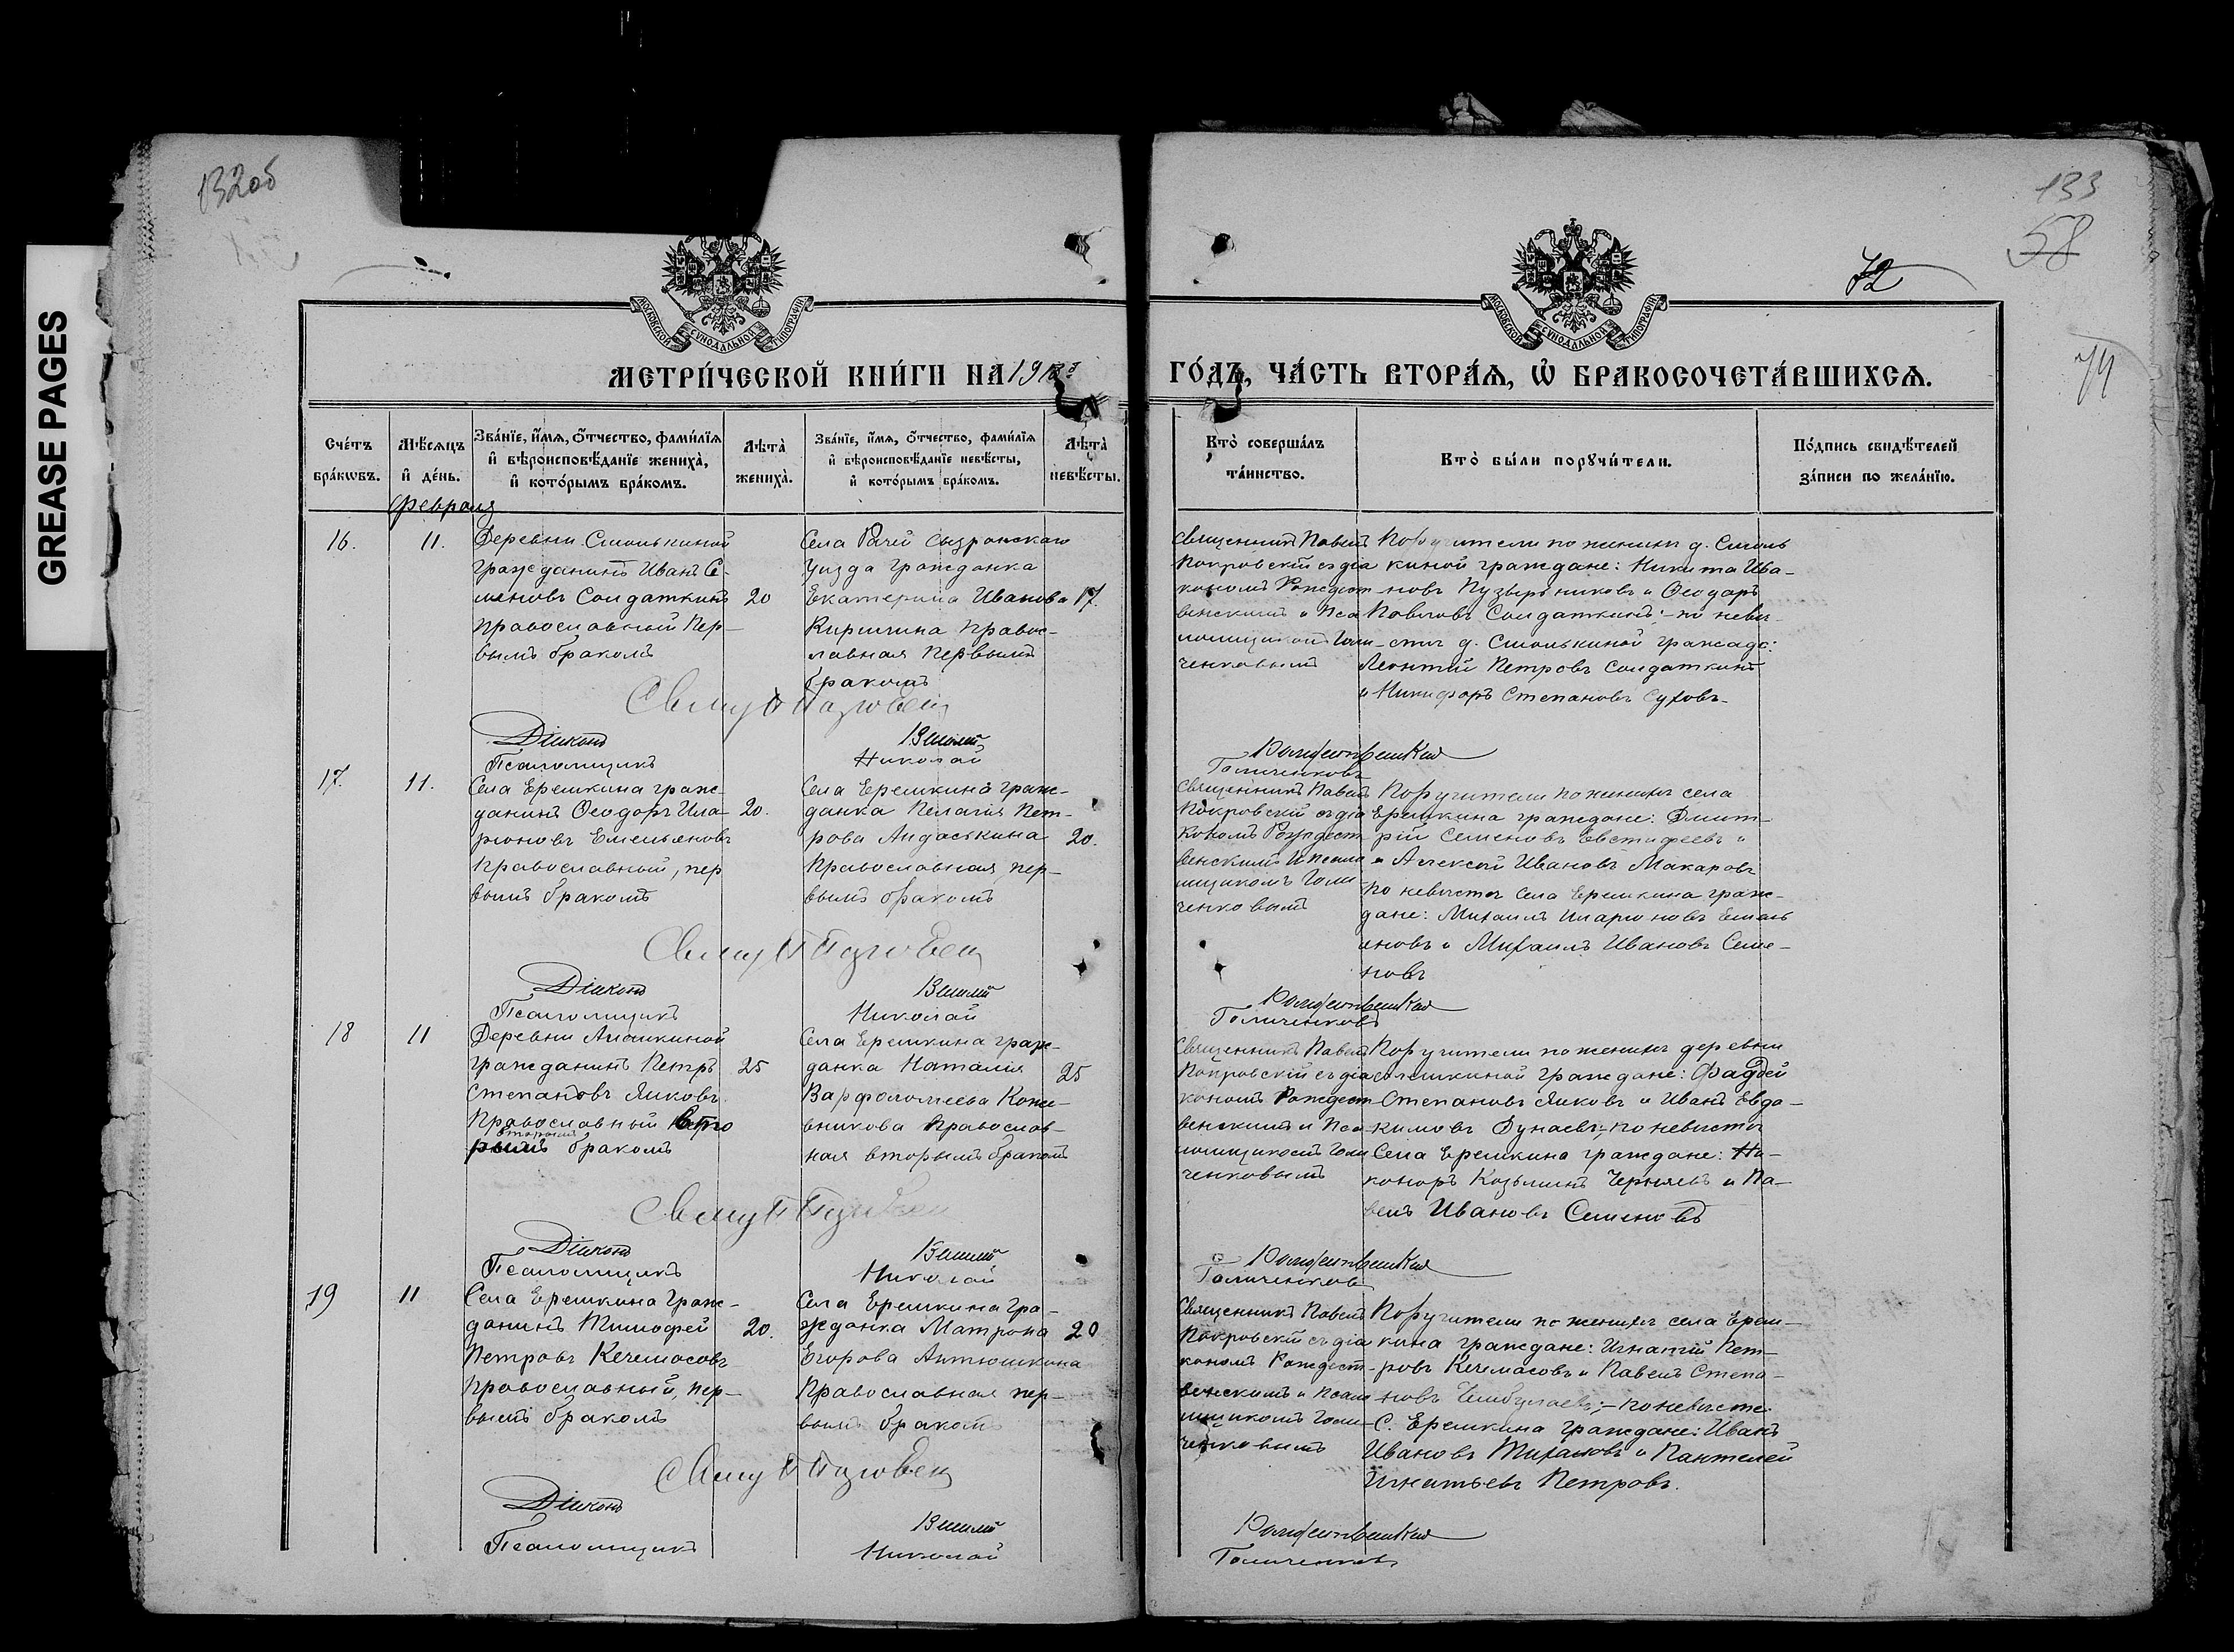 GREASE PAGES
132об
133
58
72
74
МОСКОВСКОЙ СѴНОДАЛЬНОЙ ТИПОГРАФІИ
МОСКОВСКОЙ СѴНОДАЛЬНОЙ ТИПОГРАФІИ
МЕТРИ́ЧЕСКОЙ КНИ́ГИ НА
ГО́ДЪ, ЧА́СТЬ ВТОРА́Я, Ѡ БРАКОСОЧЕТА́ВШИХСЯ.
Сче́тъ бра́кѡвъ.
Мѣ́сяцъ и де́нь.
Зва́нїе, и́мя, о́тчество, фами́лїя и вѣроисповѣ́данїе жениха̀, и кото́рымъ бра́комъ.
Лѣта̀ жениха̀.
Зва́нїе, и́мя, о́тчество, фами́лїя и вѣроисповѣ́данїе невѣ́сты, и кото́рымъ бра́комъ.
Лѣта̀ невѣ́сты.
Кто̀ соверша́лъ та́инство.
Кто̀ бы́ли порꙋчи́тели.
По́дпись свидѣ́телей за́писи по жела́нїю.
Февраля
16.
11.
Деревни Смолькиной
гражданинъ Иванъ Се-
меновъ Солдаткинъ
православный пер-
вымъ бракомъ
20
Села Рачей Сызранскаго
уѣзда гражданка
Екатерина Иванова
Киршина правос-
лавная первымъ
бракомъ
17.
Священникъ Павелъ
Покровскій съ діа
кономъ Рождест
венскимъ и Пса
ломщикомъ Голи
ченковымъ
Поручители по женихѣ д. Смоль
киной граждане: Никита Ива-
новъ Пузырниковъ и Ѳеодоръ
Павловъ Солдаткинъ;- по невѣ-
стѣ д. Смолькиной гражда:
Леонтій Петровъ Солдаткинъ
и Никифоръ Степановъ Суховъ.
Діаконъ
Псаломщикъ
Николай
Голиченковъ
17.
11.
Села Еремкина граж-
данинъ Ѳеодоръ Ила-
ріоновъ Емельяновъ
православный, пер
вымъ бракомъ
20.
Села Еремкина граж-
данка Пелагія Пет-
рова Андаськина
православная, пер-
вымъ бракомъ
20.
Священникъ Павелъ
Покровскій съ діа
кономъ Рождест
венскимъ и псало
мщикомъ Голи-
ченковымъ
Поручители по женихѣ села
Еремкина граждане: Дмит-
рій Семеновъ Евстифеевъ и
и Алексей Ивановъ Макаровъ
по невѣстѣ Села Еремкина граж-
дане: Михаилъ Иларіоновъ Емель
яновъ и Михаилъ Ивановъ Семе-
новъ
Діаконъ
Псаломщикъ
Николай
Голиченковъ
18
11
Деревни Алошкиной
гражданинъ Петръ
Степановъ Яиковъ
Православный
вторымъ
бракомъ
25
Села Еремкина граж-
данка Наталія
Варфоломеева Коже-
вникова Православ-
ная вторымъ бракомъ
25
Священникъ Павелъ
Покровскій съ діа
кономъ Рождест
венскимъ и Пса
ломщикомъ Голи
ченковымъ
Поручители по женихѣ деревни
граждане: Фаддей
Степановъ Яиковъ и Иванъ Евдо-
кимовъ Дунаевъ;- по невѣстѣ
Села Еремкина граждане: Ни-
каноръ Козьминъ Черняевъ и Па-
велъ Ивановъ Семеновъ
Діаконъ
Псаломщикъ
Николай
Голиченковъ
19
11
Села Еремкина граж-
данинъ Тимофей
Петровъ Кечемасовъ
православный, пер-
вымъ бракомъ
20.
Села Еремкина гра-
жданка Матрона
Егорова Антюшкина
Православная пер-
вымъ бракомъ
20
Священникъ Павелъ
Покровскій съ діа
кономъ Рождест-
венскимъ и псало
мщикомъ Голи-
ченковымъ
Поручители по женихѣ села Ерем-
кина граждане: Игнатій Пет-
ровъ Кечемасовъ и Павелъ Степа-
новъ по невѣсте
С. Еремкина граждане: Иванъ
Ивановъ и Пантелей
Игнатьевъ Петровъ.
Діаконъ
Псаломщикъ
Николай
Голиченковъ